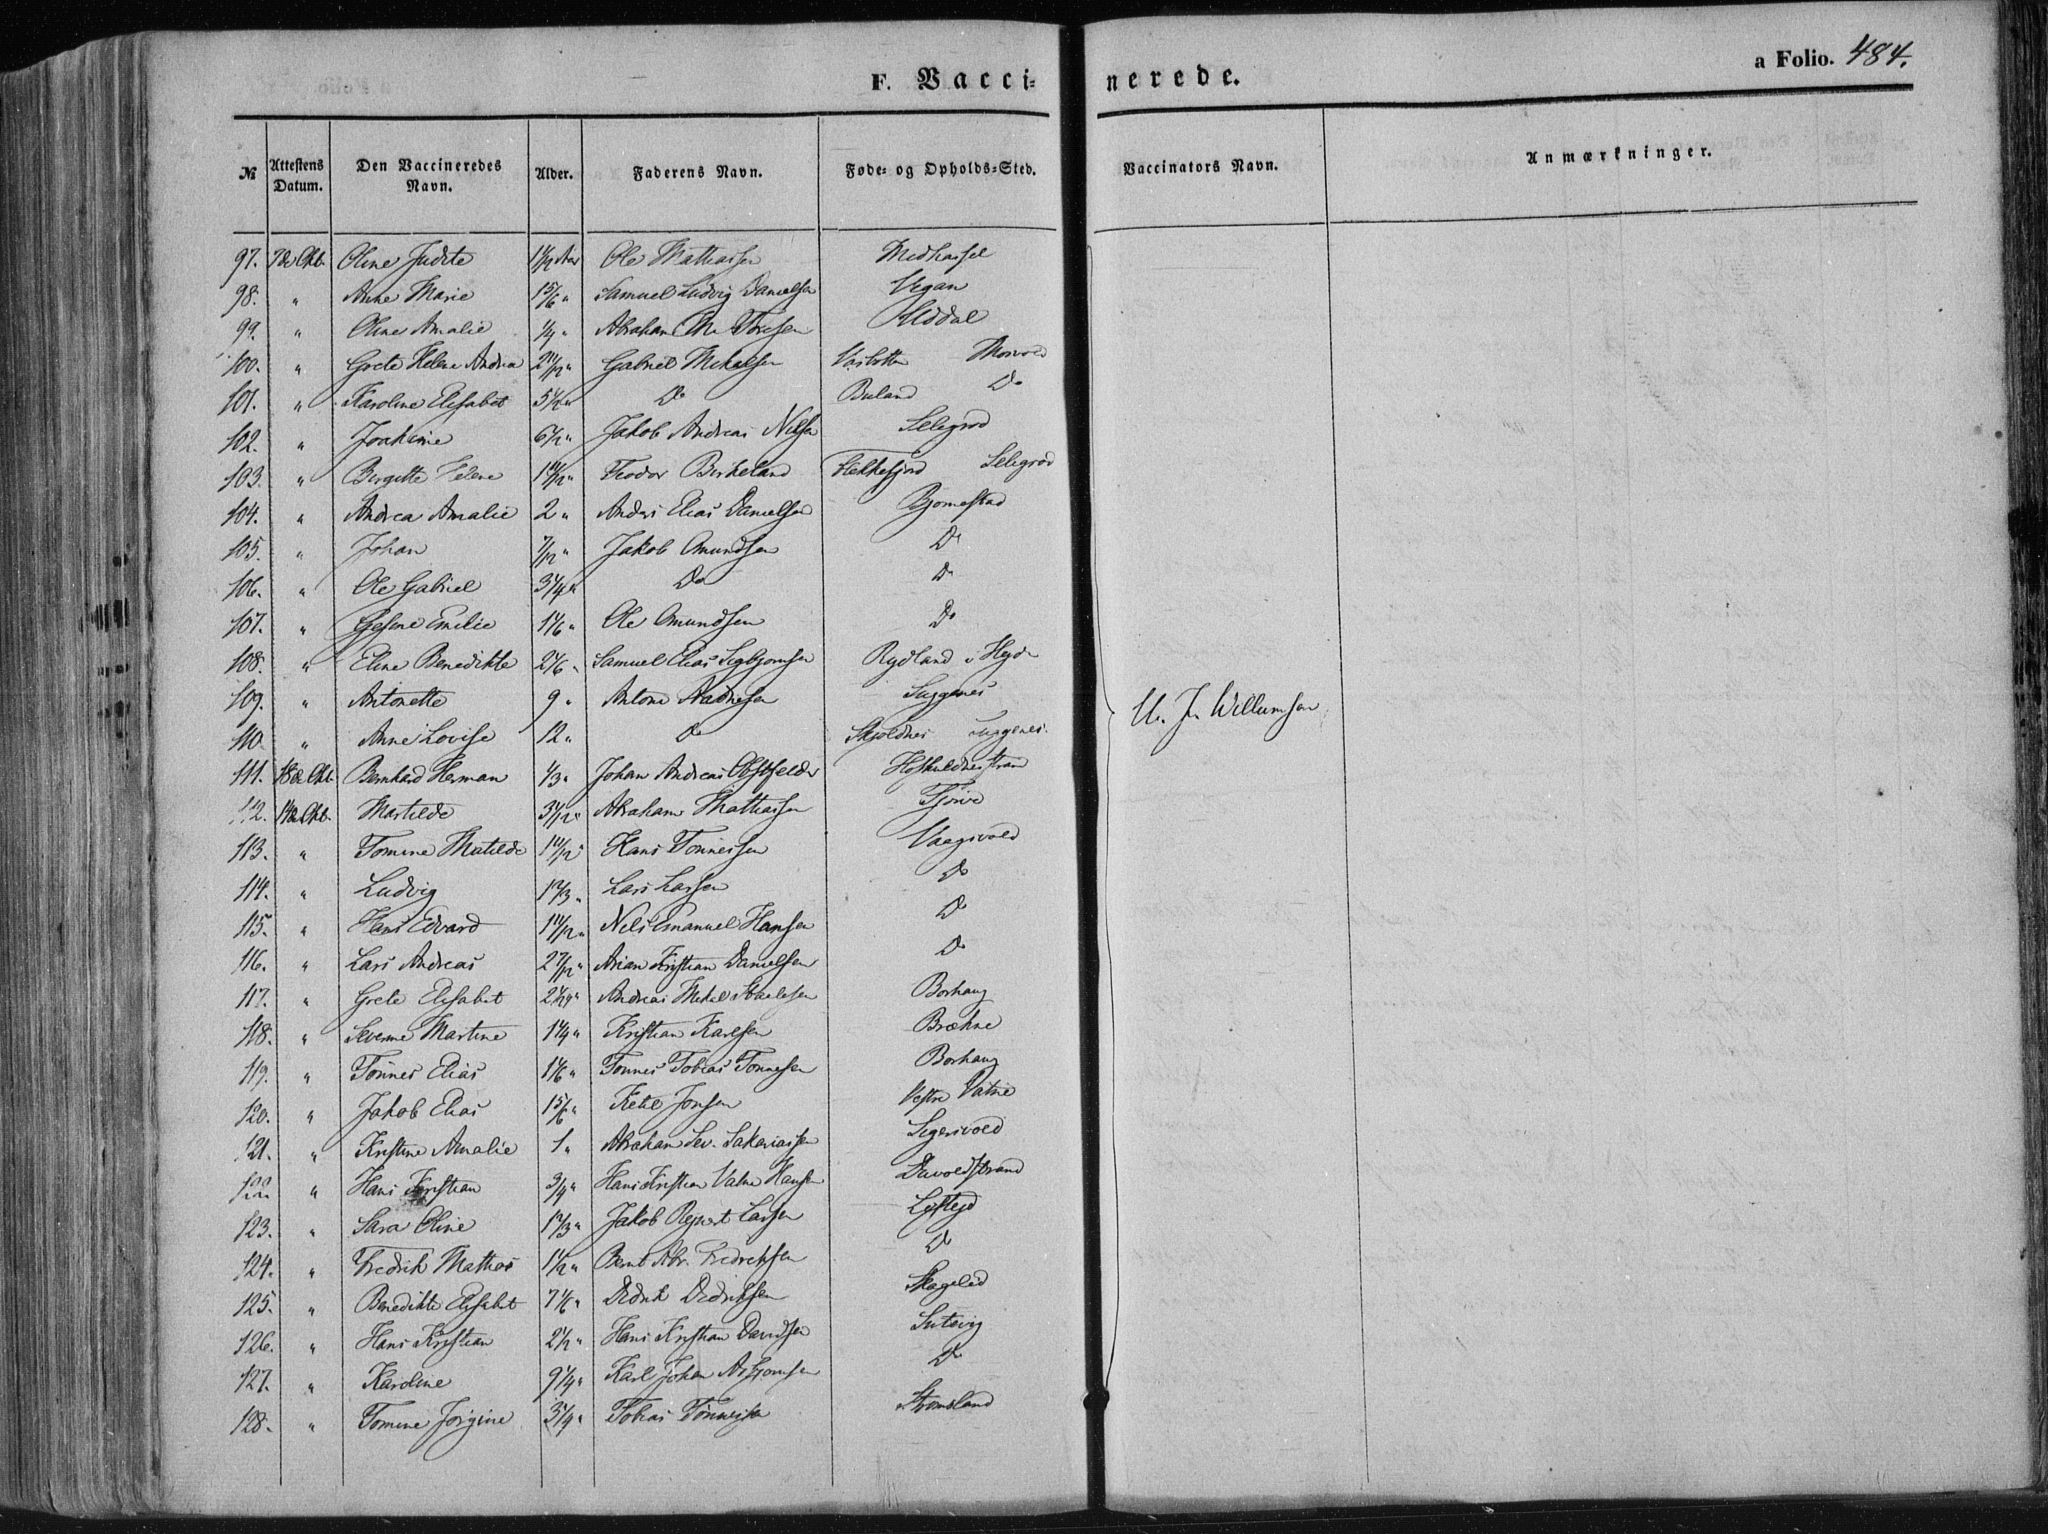 a Folio. 484.
F. Vacci- nerede.
№ Attestens Datum. Den Vaccineredes Navn. Alder. Faderens Navn. Føde- og Opholds-Sted. Vaccinators Navn. Anmærkninger.
97. 7de Okb. Oline Judite 1 1/2 Aar Ole Mathiassen Midhassel
98. " Anne Marie 1 5/6 " Samuel Ludvig Danielsen Vegan
99. " Oline Amalie 1/4 " Abraham Ole Toresen
100. " Grete Helene Andrea 2 11/12 " Gabriel Mikalsen
101. " Karoline Elisabet 5 1/2 " Do Buland Do
102. " Joakime 6 1/2 " Jakob Andreas Nilsen Selegrød
103. " Birgitte Helene 1 11/12 " Teodor Birkeland Flekkefjord Selegrød
104. " Andrea Amalie 2 " Anders Elias Danielsen Bjørnestad
105. " Johan 7/12 " Jakob Omundsen Do
106. " Ole Gabriel 3 1/4 " Do Do
107. " Gesine Emilie 1 1/6 " Ole Omundsen Do
108. " Eline Benedikte 2 1/6 " Samuel Elias Sigbjørnsen Rydland i
109. " Antonette 9 " Anton Aadnesen Siggenes
110. " Anne Lovise 12 " Do Skjoldnes Siggenes. U. J. Willumsen
111. 18de Okb. Bernhard Herman 1/3 " Johan Andreas Obstfelder
112. Okb. Martilde Abraham Mathiassen Tjørve
113. " Tomine Matilde 1 11/12 " Hans Tønnessen Vaagsvold
114. " Ludvig 1 2/3 " Lars Larsen Do
115. " Hans Edvard 1 11/12 " Nels Emanuel Hansen Do
116. " Lars Andreas 2 7/12 " Arian Kristian Danielsen Do
117. " Grete Elisabet Andreas Mikal Borhaug
118. " Severine Martine 1 1/4 " Kristian Karlsen Brækne
119. " Tønnes Elias 1 1/6 " Tønnes Tobias Tønnesen Borhaug
120. " Jakob Elias 1 5/6 " Ketil Jonsen Vestre Vatne
121. " Kristine Amalie 1 " Abraham Sev. Sakariassen Sigersvold
122. " Hans Kristian 3/4 " Hans Kristian Vatne Hansen
123. " Sara Oline 1 2/3 " Jakob Reinert Larsen
124. " Fredrik Mathias 1 1/2 " Bernt Abr. Fredriksen Do
125. " Benedikte Elisabet 7 1/6 " Didrik Didriksen Skageled
126. " Hans Kristian 2 1/2 " Hans Kristian Davidsen
127. " Karoline 9 1/4 " Karl Johan Asbjørnsen Do
128. " Tomine Jørgine 3 1/4 " Tobias Tønnessen Strømsland